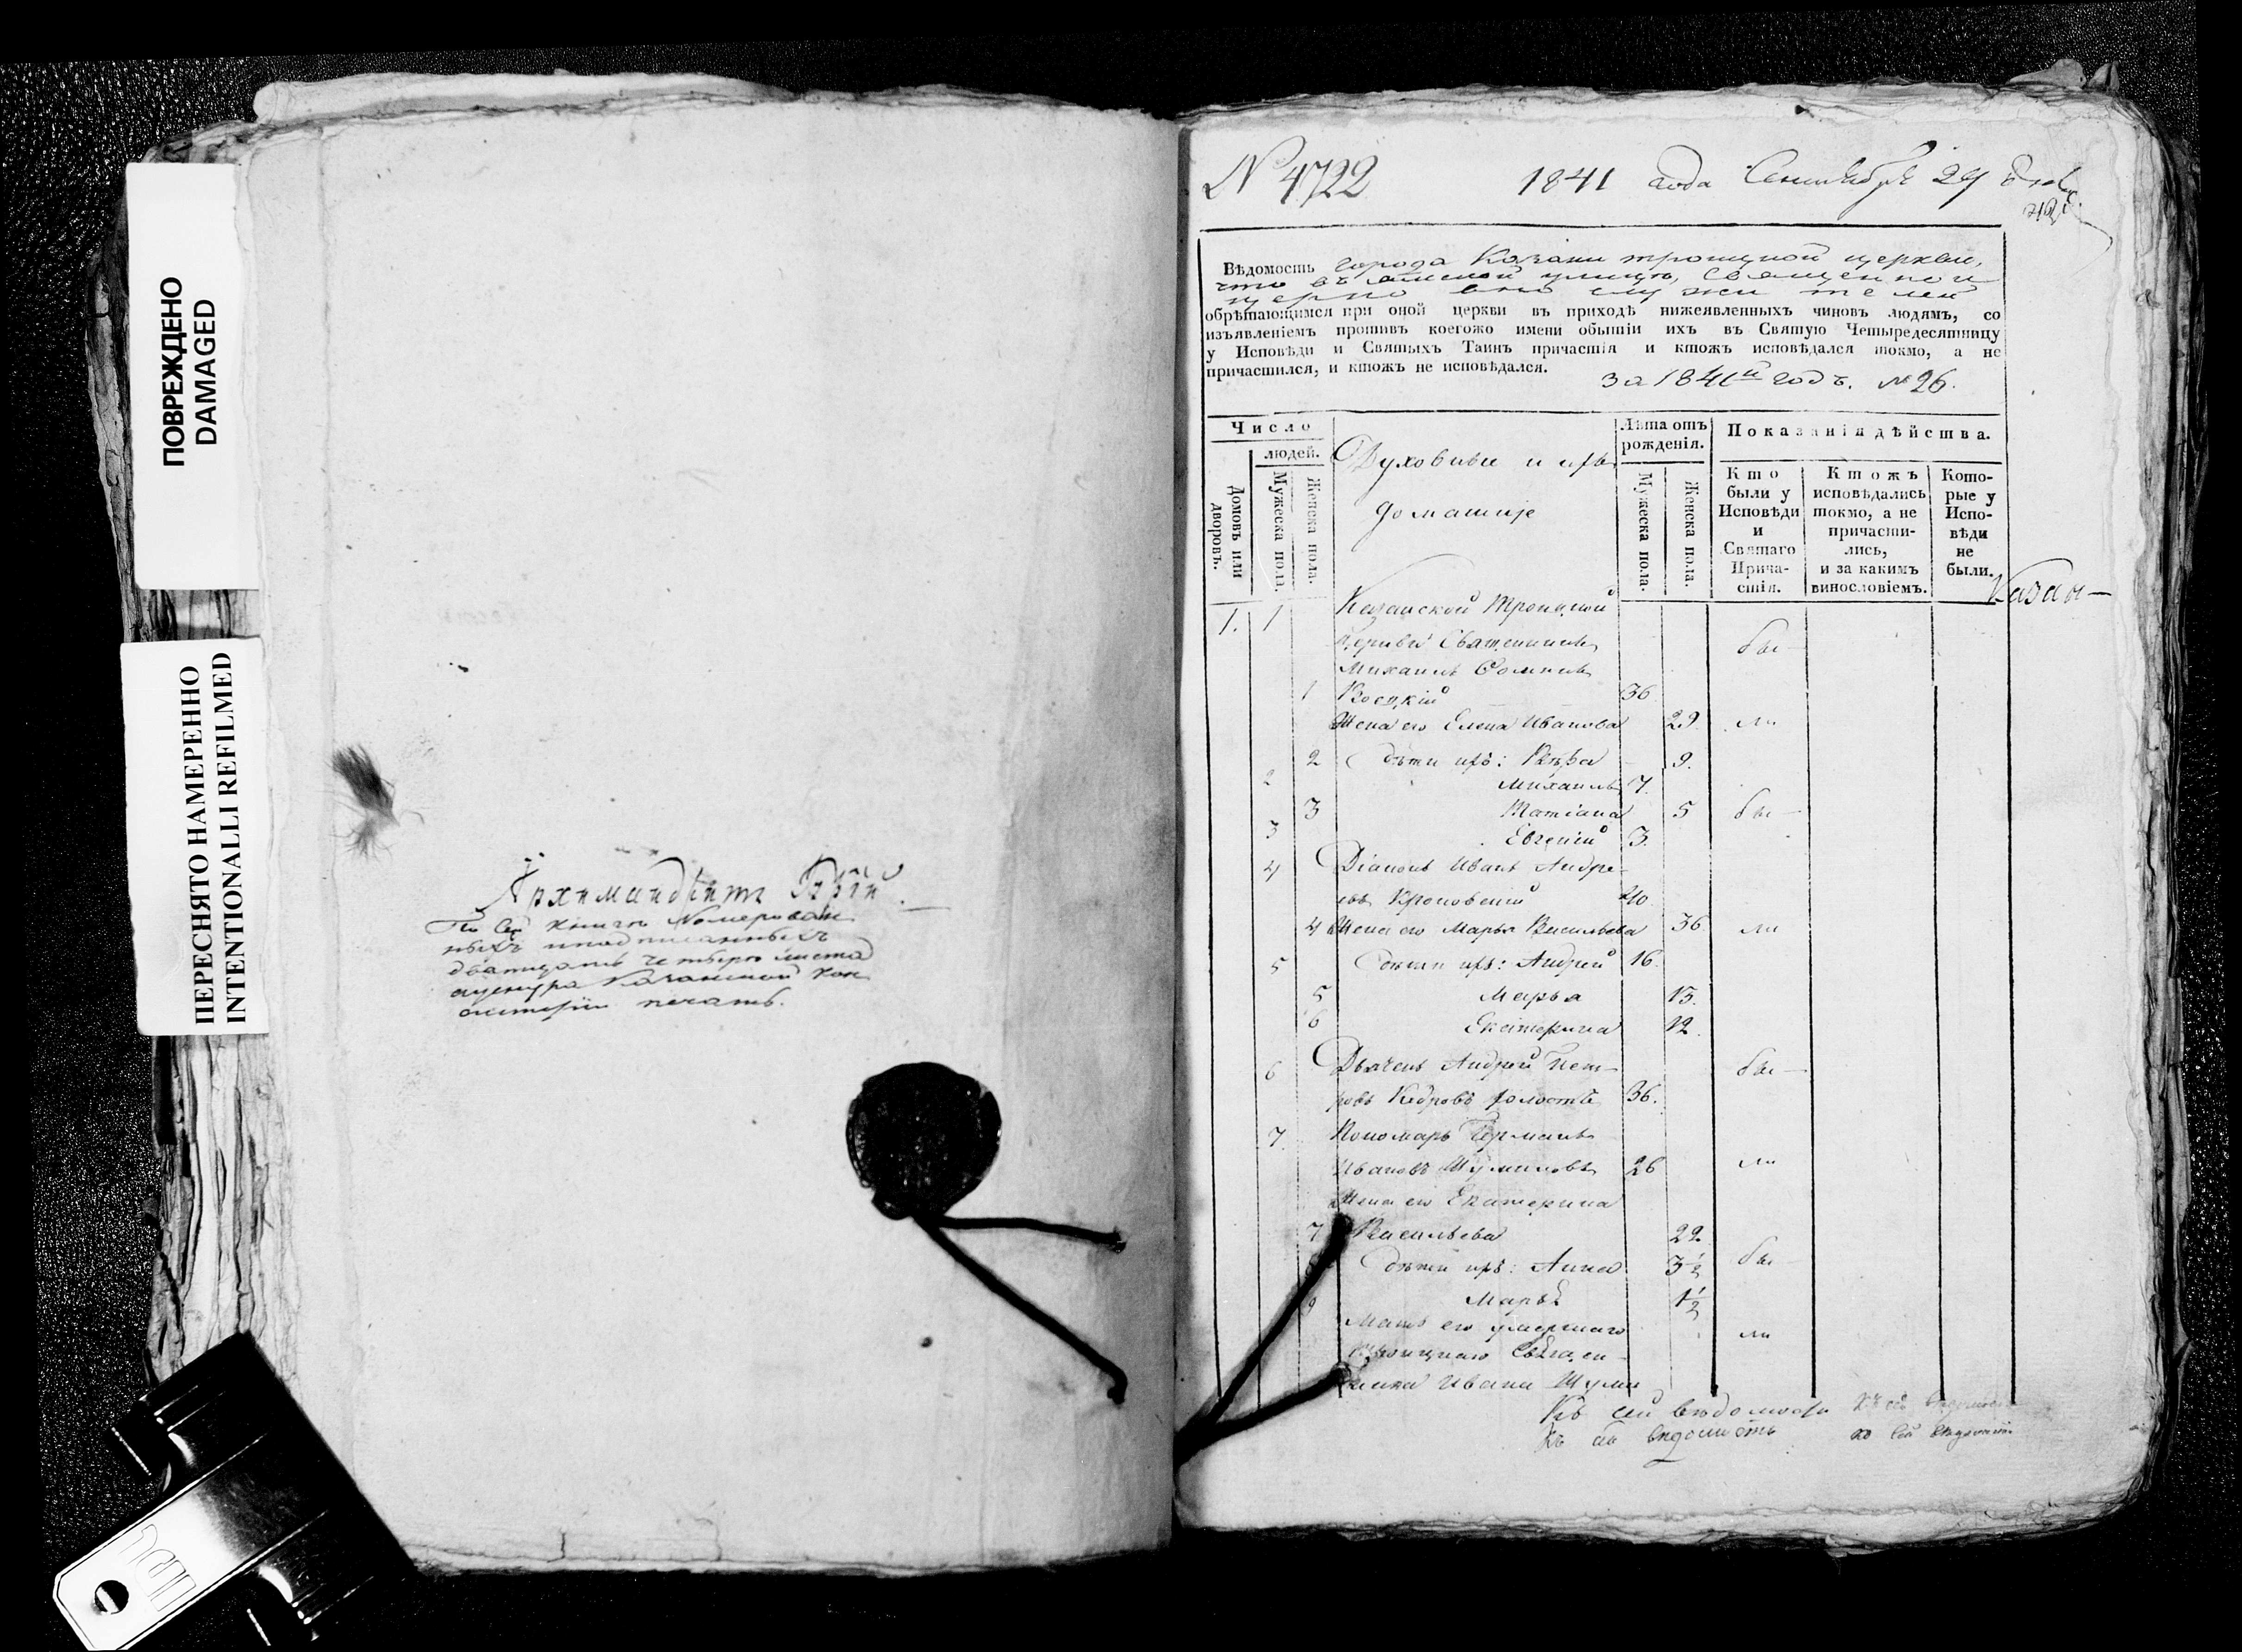 ПОВРЕЖДЕНО
DAMAGED
ПЕРЕСНЯТО НАМЕРЕННО
INTENTIONALLI REFILMED
Архимандритъ
По сей книгѣ номерован
ныхъ и подписанныхъ
дватцать четыре листа
Казанской кон
систоріи печать.
№ 4722 1841 года Сентября 29 дня
Вѣдомость города Казани троицкой церкви,
что въ ямской улицѣ, Священно и
церковно служителей
обрѣтающимся при оной церкви въ приходѣ нижеявленныхъ чиновъ людямъ, со
изъявленіемъ противъ коегожо имени обытіи ихъ въ Святую Четыредесятницу
у Исповѣди и Святыхъ Таинъ причастія и ктожъ исповѣдался токмо, а не
причастился, и ктожъ не исповѣдался.
за 1841й годъ. № 26.
Число
людей.
Домовъ или дворовъ.
Мужеска пола.
Женска пола.
Духовные и ихъ
домашніе
Лѣта отъ рожденія.
Мужеска пола.
Женска пола.
Показанія дѣйства.
Кто были у Исповѣди и Святаго Причастія.
Ктожъ исповѣдались токмо, а не причастились, и за какимъ винословіемъ.
Которые у Исповѣди не были.
Казан—
1. 1 Казанской Троицкой
церкви Священникъ бы—
Михаилъ
36
1 Жена его Елена Иванова 29. ли
2 дѣти ихъ: Вѣра 9.
2 Михаилъ 7.
3 Татіана 5 бы—
3 Евгеній 3.
4 Діаконъ Иванъ Андре-
евъ 40
4 Жена его Марья Васильева 36 ли
5 дѣти ихъ: Андрей 16.
5 Марья 15.
6 Екатерина 12.
6 Дьячекъ Андрей Пет- бы—
ровъ Кедровъ холостъ 36.
7. Пономарь Германъ
Ивановъ Шумиловъ 26 ли
Жена его Екатерина
7 Васильева 22
дѣти ихъ: Анна 3½ бы—
9 Марья 1½
Мать его умершаго ли
Священ-
ника Ивана Шуми
Къ сей вѣдомости
Къ сей вѣдомости